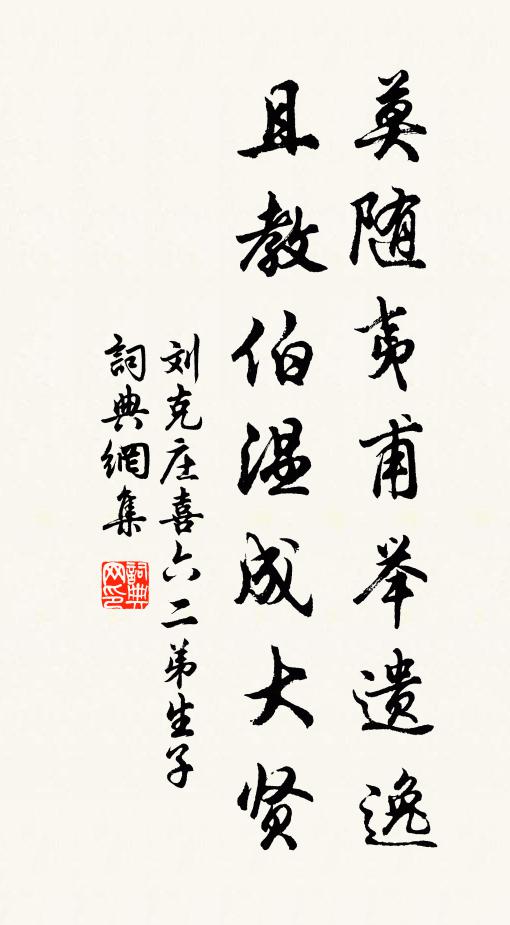 莫随夷甫举遗逸
且教伯温成大贤
刘克庄喜六二弟生子
詞典網集
詞典网印